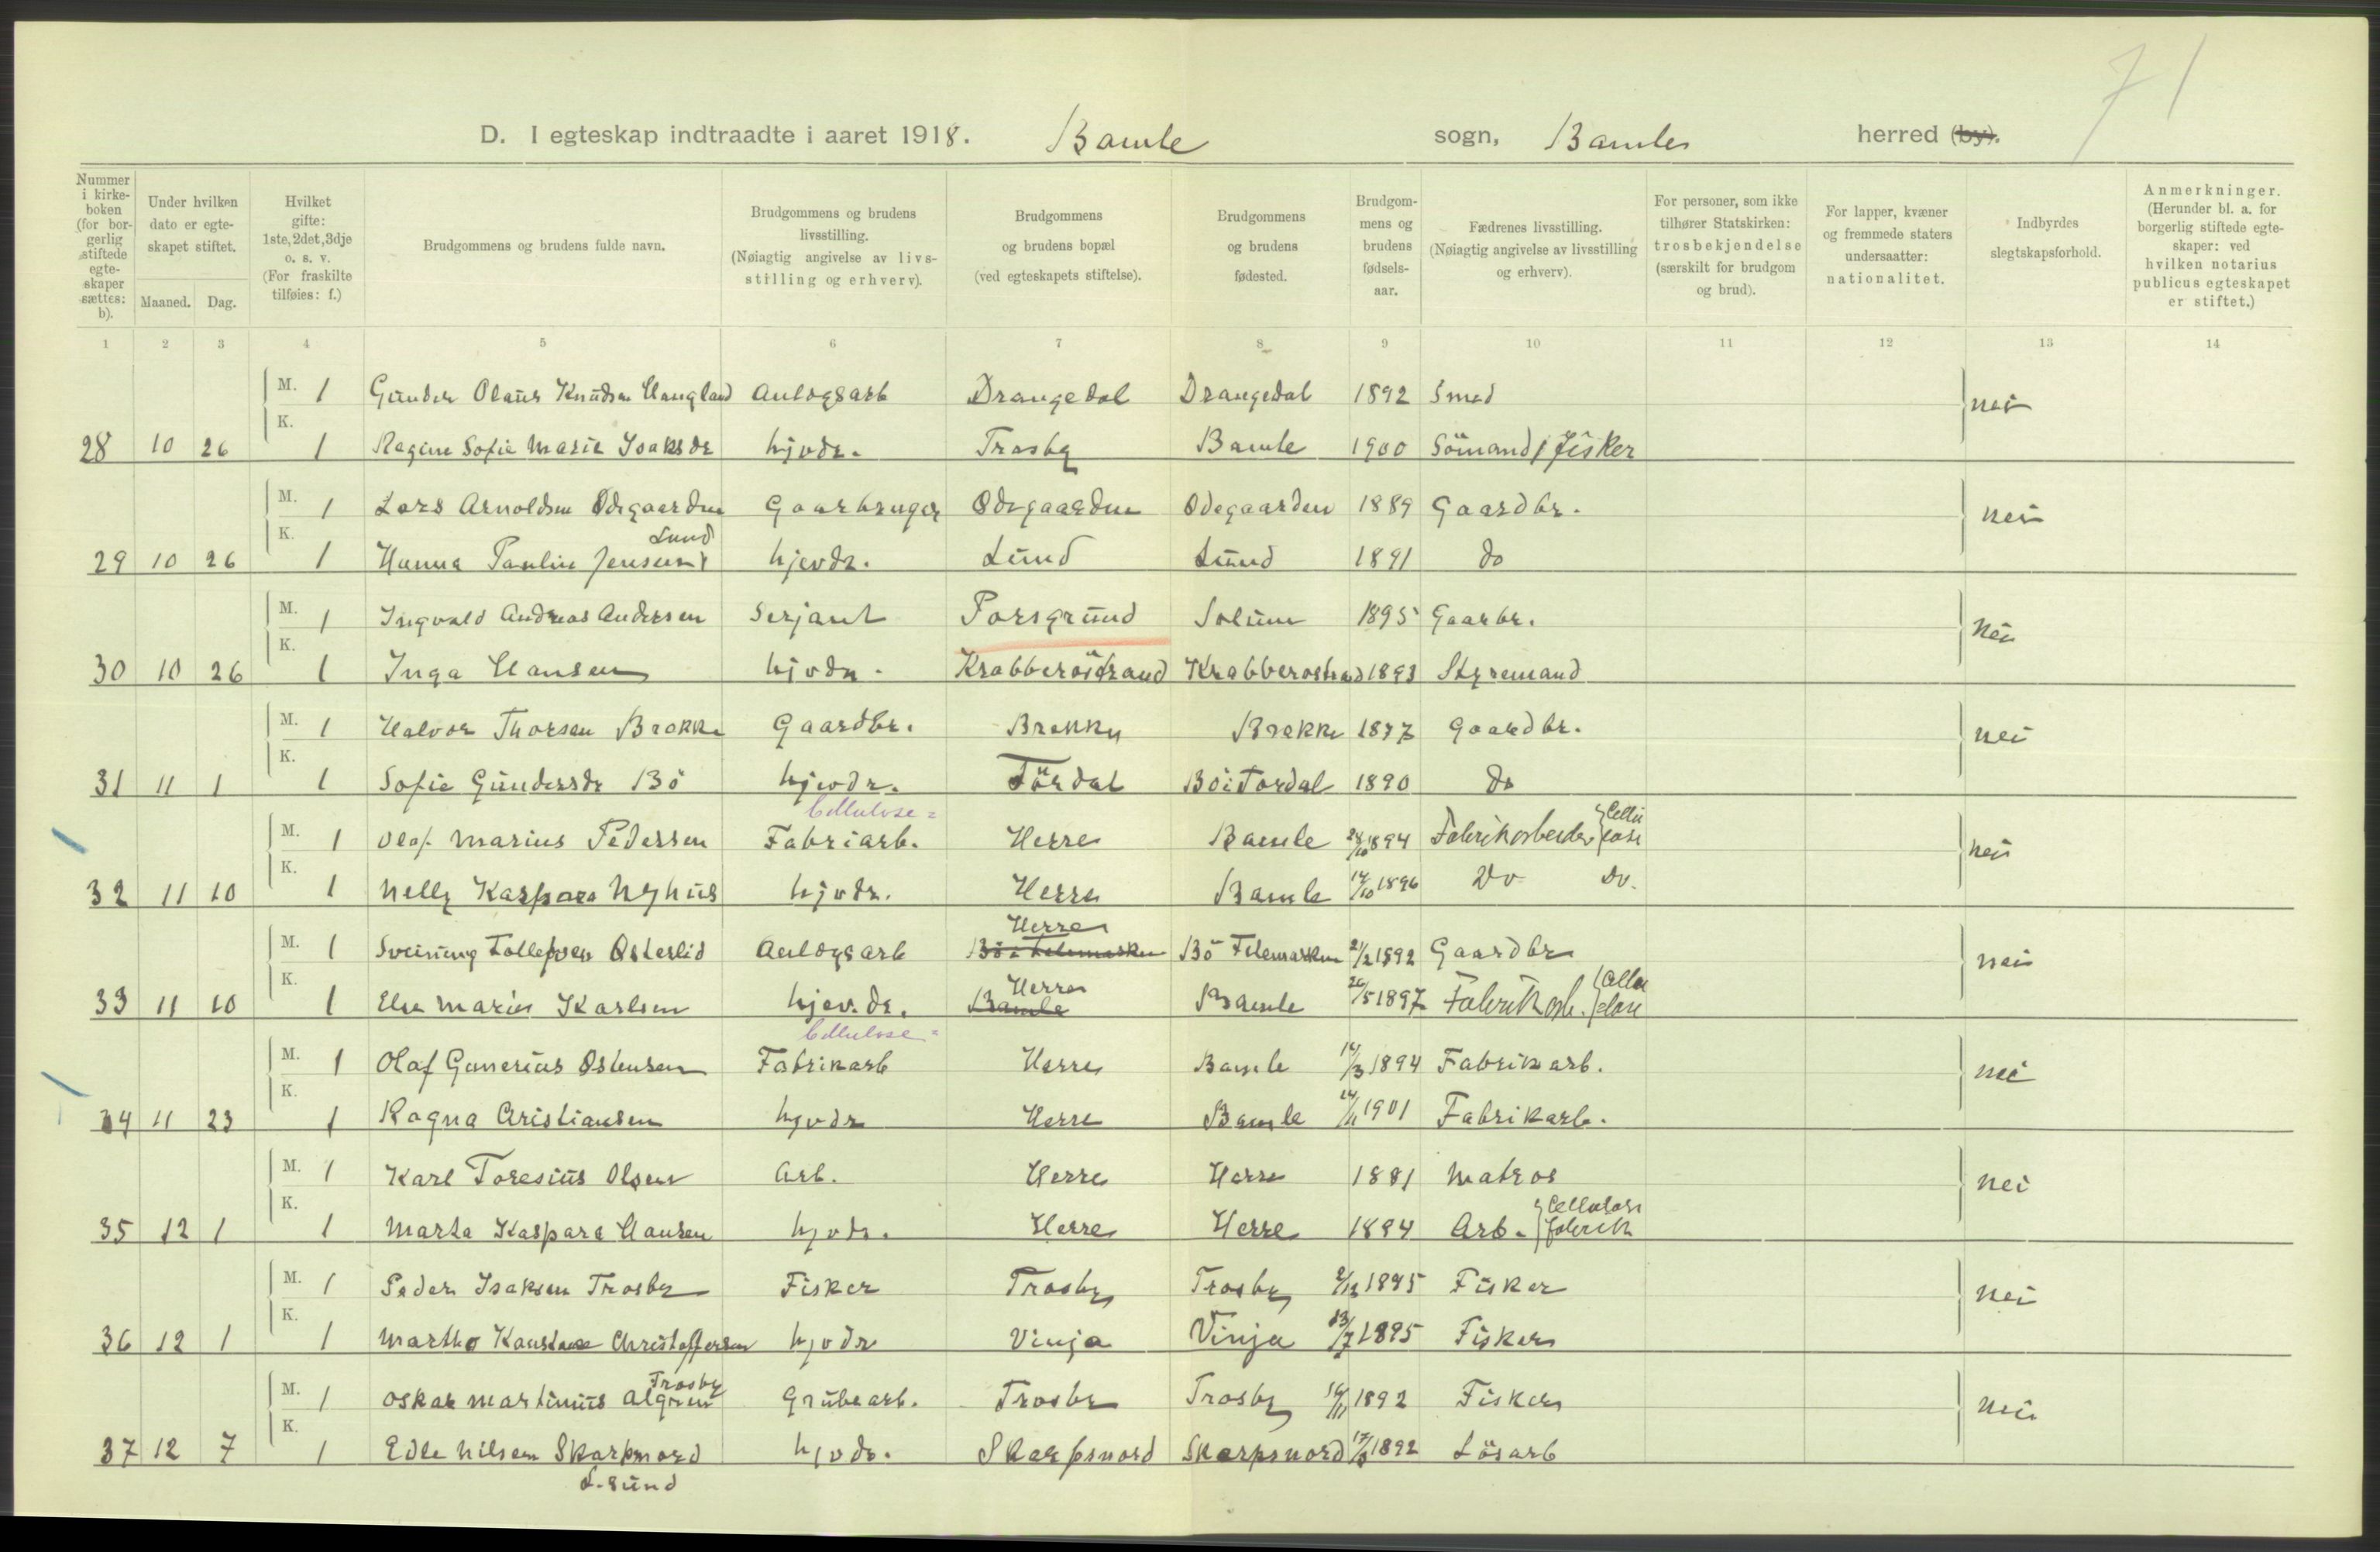 71
D. I egteskap indtraadte i aaret 1918. Bamle sogn, Bamle herred (by).
Nummer i kirkeboken (for borgerlig stiftede egteskaper sættes: b).
Under hvilken dato er egteskapet stiftet.
Maaned. Dag.
Hvilket gifte: 1ste, 2det, 3dje o. s. v. (For fraskilte tilføies: f.)
Brudgommens og brudens fulde navn.
Brudgommens og brudens livsstilling. (Nøiagtig angivelse av livsstilling og erhverv).
Brudgommens og brudens bopæl (ved egteskapets stiftelse).
Brudgommens og brudens fødested.
Brudgommens og brudens fødselsaar.
Fædrenes livsstilling. (Nøiagtig angivelse av livsstilling og erhverv).
For personer, som ikke tilhører Statskirken: trosbekjendelse (særskilt for brudgom og brud).
For lapper, kvæner og fremmede staters undersaatter: nationalitet.
Indbyrdes slegtskapsforhold.
Anmerkninger. (Herunder bl. a. for borgerlig stiftede egteskaper: ved hvilken notarius publicus egteskapet er stiftet.)
1 2 3 4 5 6 7 8 9 10 11 12 13 14
M. 1 Gunder Olaus Knudsen Haugland Anlægsarb Drangedal Drangedal 1892 Smed nei
28 10 26 K. 1 Ragine Sofie Marie Isaksdr hjvdr. Trosby Bamle 1900 Sömand / Fisker
M. 1 Lars Arnoldsen Ödegaarden Gaarbruger Ödegaarden Ödegaarden 1889 Gaardbr. nei
Lund
29 10 26 K. 1 Hanna Pauline Jensen hjevdr. Lund Lund 1891 do
M. 1 Ingvald Andreas Andersen Serjant Porsgrund Solum 1895 Gaarbr. nei
30 10 26 K. 1 Inga Hansen hjvdr. Krabberöstrand Krabberostrad 1893 Styremand
M. 1 Halvor Thorsen Brekke Gaardbr. Brekke Brekke 1877 Gaardbr. nei
31 11 1 K. 1 Sofie Gundersdr Bö hjevdr. Tördal Bö i Tordal 1890 do
Cellulose=
M. 1 Olaf Marius Pedersen Fabriarb. Herre Bamle 28/10 1894 Fabrikarbeider Cellulose nei
32 11 10 K. 1 Nelly Kaspara Nyhus hjvdr. Herre Bamle 14/10 1896 Do Do.
Herre
M. 1 Sveinung Tollefsen Österlid Anlægsarb Bö i Telemarken Bö Telemarken 21/2 1892 Gaardbr nei
Herre
33 11 10 K. 1 Else Marie Karlsen hjev.dr. Bamle Bamle 26/5 1897 Fabrikarb. Cellulose
Cellulose=
M. 1 Olaf Gunerius Ostensen Fabrikarb Herre Bamle 14/3 1894 Fabrikarb. nei
34 11 23 K. 1 Ragna Cristiansen hjvdr Herre Bamle 1901 Fabrikarb.
M. 1 Karl Toresius Olsen Arb. Herre Herre 1881 Matros nei
35 12 1 K. 1 Marta Kaspara Hansen hjvdr. Herre Herre 1894 Arb. Cellulose fabrik
M. 1 Peder Isaksen Trosby Fisker Trosby Trosby 2/12 1895 Fisker nei
36 12 1 K. 1 Martha Konstanse Christoffersen hjvdr Vinja Vinja 23/7 1895 Fisker
Trosby
M. 1 Oskar Martinius Algren Grubearb. Trosby Trosby 14/11 1892 Fisker nei
37 12 7 K. 1 Edle Nilsen Skarpnord hjvdr. Skarpsnord Skarpsnord 1892 Lösarb
L.sund